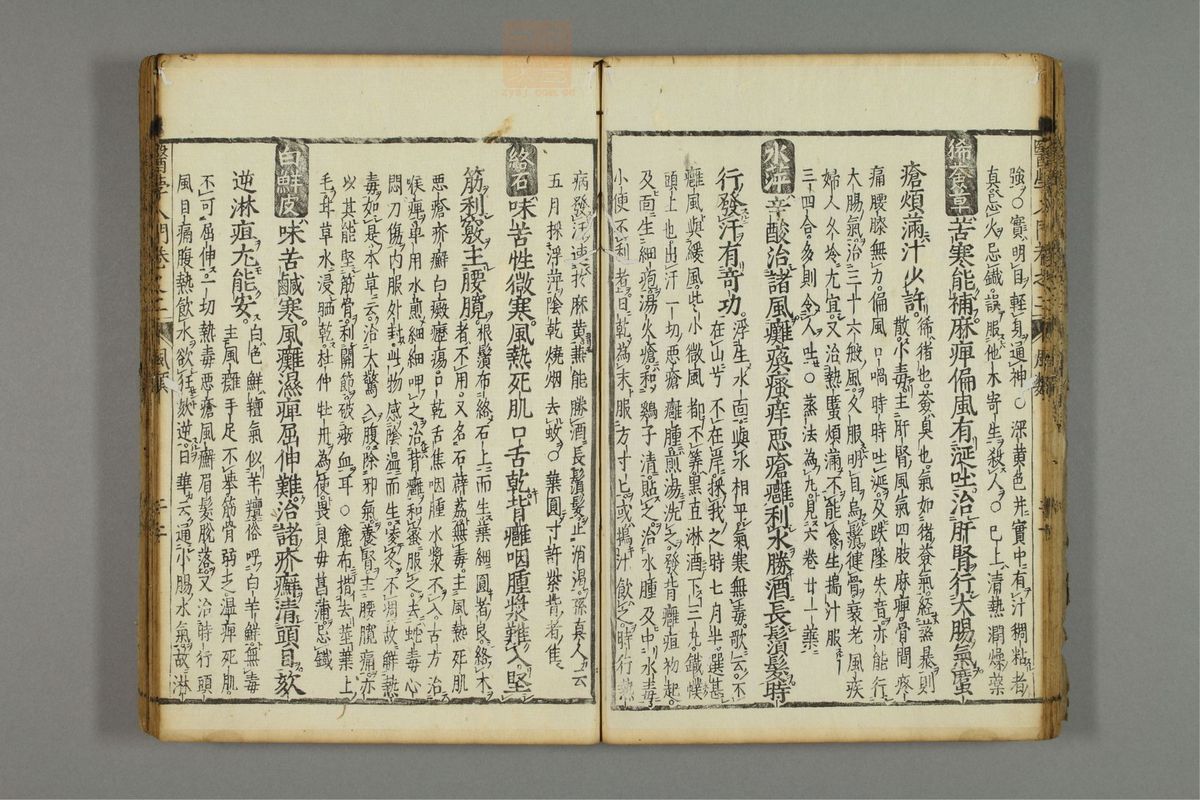 強○實明目輕身通神○深黃色并實中有汁稠粘者
真忌火忌鐵誤服他木寄生殺人○已上清熱潤燥藥
豨薟草
苦寒能補麻痺偏風有涎吐治肝腎行大腸氣䘌
瘡煩滿汁少許
豨猪也薟臭也氣如猪薟氣經蒸暴則
散小毒主肝腎風氣四肢麻痺骨間疼
痛腰膝無力偏風口喎時時吐涎及跌墜失音亦能行
大腸氣治三十六般風久服明目烏鬚健骨衰老風疾
婦人久冷尤宜又治熱䘌煩滿不能食生搗汁服
三四合多則令人吐○蒸法為丸見六卷廿一藥
水萍
辛酸治諸風癱瘓瘙痒惡瘡癰利水勝酒長鬚髮時
行發汗有竒功
浮生水面與水相平氣寒無毒歌云不
在山兮不在岸採我之時七月半選甚
癱風與緩風些小微風都不筭黑豆淋酒下三丸鐵幞
頭上也出汗一切惡瘡癰腫煎湯洗之發背癰疽初起
及面生細疱湯火瘡和鷄子清貼之治水腫及中水毒
小便不利者日乾為末服方寸匕或搗汁飲之時行熱
病發汗速於麻黃兼能勝酒長鬚髮止消渴孫真人云
五月採浮萍陰乾燒烟去蚊○葉圓寸許紫背者佳
絡石
味苦性微寒風熱死肌口舌乾背癰咽腫漿難入堅
筋利竅主腰臗
根鬚布絡石上而生葉細圓者良絡木
者不用又名石薜荔無毒主風熱死肌
惡瘡疥癬白癜癧瘍口乾舌焦咽腫水漿不入古方治
喉痺單用水煎細細呷之治背癰和蜜服之去蛇毒心
悶刀傷內服外封此物感陰濕而生凌冬不凋故解熱
毒如是本草云治大驚入腹除邪氣養腎主腰臗痛亦
以其能堅筋骨利關節破瘀血耳○麄布揩去莖葉上
毛茸草水浸晒乾杜仲牡丹為使畏貝母菖蒲忌鐵
白鮮皮
味苦鹹寒風癱濕痺屈伸難治諸疥癬清頭目欬
逆淋疸尤能安
白色鮮羶氣似羊羶俗呼白羊鮮無毒
主風癱手足不舉筋骨弱乏濕痺死肌
不可屈伸一切熱毒惡瘡風癬眉髮脫落又治時行頭
風目痛腹熱飲水欲狂欬逆日華云通小腸水氣故淋